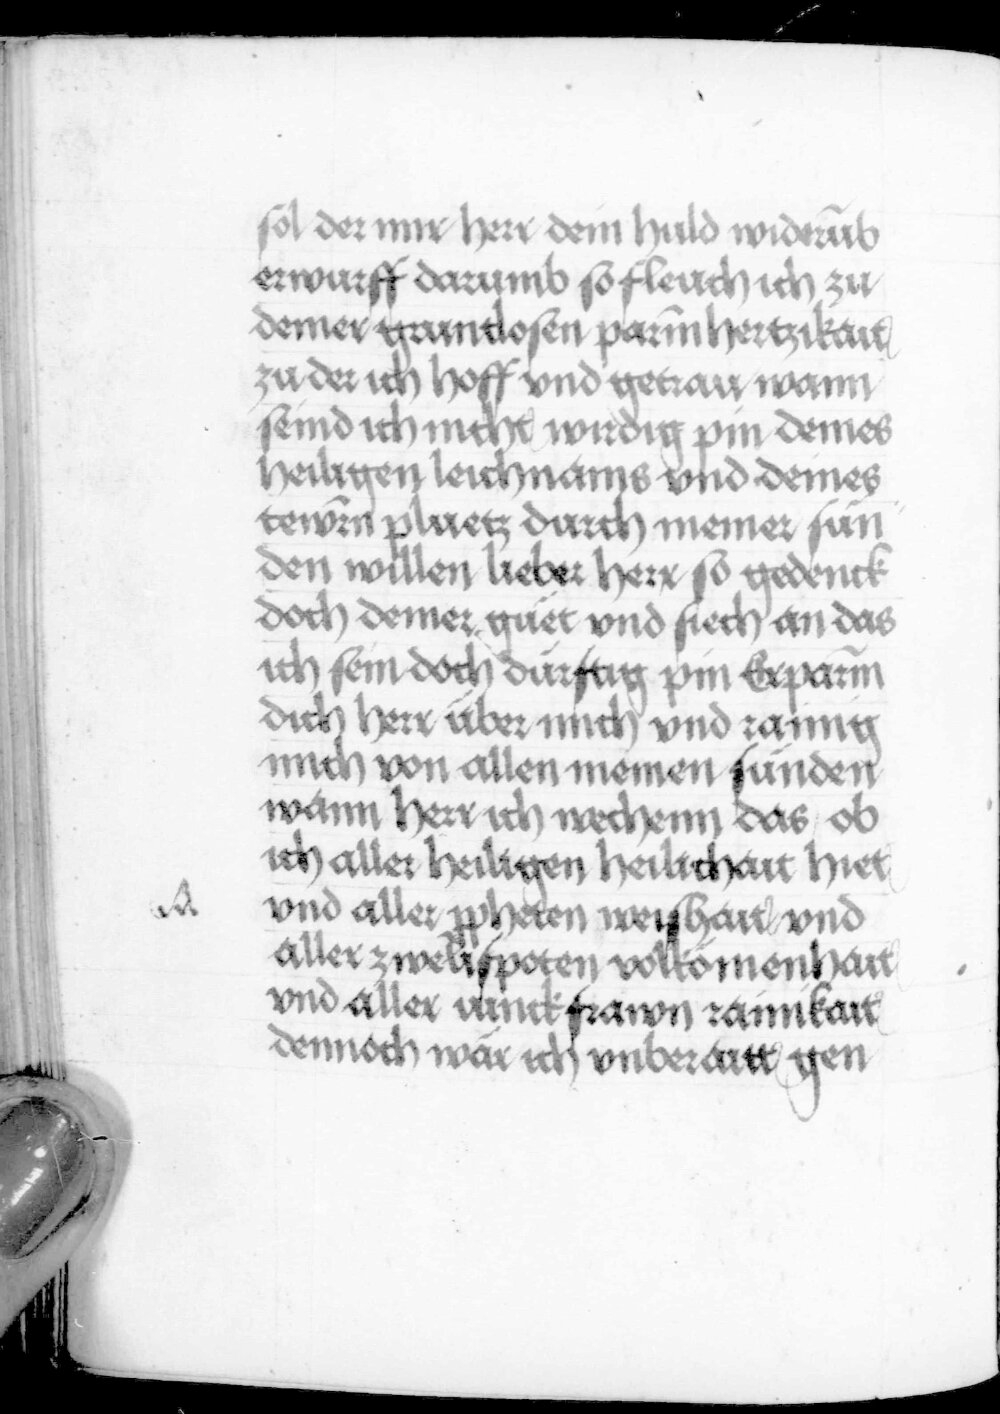 sol der mir herr dein huld widerūb
erwurff darumb so fleuch ich zu
deiner gruntlosen parm̄hertzikait
zu der ich hoff vnd getrau wann
seind ich nicht wirdig pin deines
heiligen leichnams vnd deines
tewrn̄ pluetz durch meiner sün
den willen lieber herr so gedenck
doch deiner güet vnd siech an das
ich sein doch dürftig pin Erparm̄
dich herr über mich vnd rainig
mich von allen meinen sünden
wann herr ich vechenn das ob
ich aller heiligen heilichait hiet
vnd aller ꝓpheten weishait vnd
aller zwelifpoten volkōmenhait
vnd aller iunckfrawn rainikait
dennoch wär ich vnberaitt gen